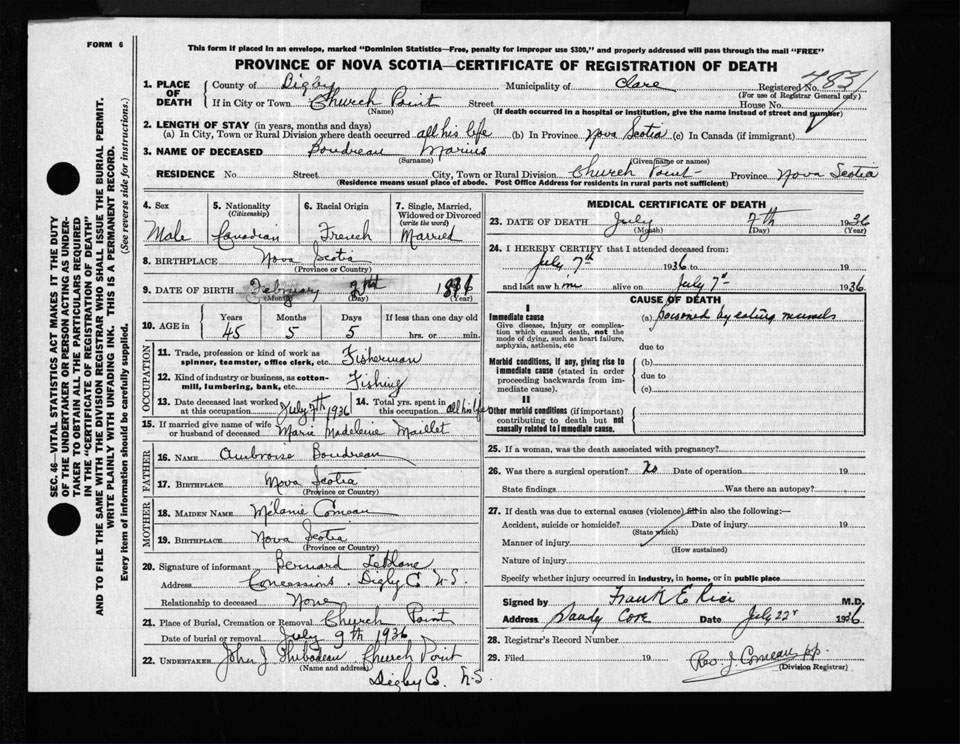 FORM 6
This form if placed in an envelope, marked "Dominion Statistics—Free, penalty for improper use $300," and properly addressed will pass through the mail "FREE"
PROVINCE OF NOVA SCOTIA—CERTIFICATE OF REGISTRATION OF DEATH
1. PLACE OF DEATH County of Digby Municipality of Clare Registered No.
(For use of Registrar General only)
If in City or Town Church Point Street House No.
(Name) (If death occurred in a hospital or institution, give the name instead of street and number)
2. LENGTH OF STAY (in years, months and days)
(a) In City, Town or Rural Division where death occurred all his life (b) In Province Nova Scotia (c) In Canada (if immigrant)
3. NAME OF DECEASED Boudreau Marius
(Surname) (Given name or names)
RESIDENCE No Street City, Town or Rural Division Church Point Province Nova Scotia
(Residence means usual place of abode. Post Office Address for residents in rural parts not sufficient)
4. Sex 5. Nationality (Citizenship) 6. Racial Origin 7. Single, Married, Widowed or Divorced (write the word)
Male Canadian French Married
8. BIRTHPLACE Nova Scotia
(Province or Country)
9. DATE OF BIRTH February 2nd
(Month) (Day) (Year)
10. AGE in Years Months Days If less than one day old
45 5 5 hrs. or min.
OCCUPATION
11. Trade, profession or kind of work as spinner, teamster, office clerk, etc. Fisherman
12. Kind of industry or business, as cotton-mill, lumbering, bank, etc. Fishing
13. Date deceased last worked at this occupation July 7th 1936 14. Total yrs. spent in this occupation all his life
15. If married give name of wife or husband of deceased Marie Madeleine Maillet
FATHER
16. NAME Ambroise Boudreau
17. BIRTHPLACE Nova Scotia
(Province or Country)
MOTHER
18. MAIDEN NAME Mélanie Comeau
19. BIRTHPLACE Nova Scotia
(Province or Country)
20. Signature of informant Bernard LeBlanc
Address Concessions. Digby C. N.S.
Relationship to deceased None
21. Place of Burial, Cremation or Removal Church Point
Date of burial or removal July 9th 1936
22. UNDERTAKER John J Thibodeau Church Point
(Name and address)
Digby C. N.S.
MEDICAL CERTIFICATE OF DEATH
23. DATE OF DEATH July 7th 1936
(Month) (Day) (Year)
24. I HEREBY CERTIFY that I attended deceased from:
July 7th 1936 to 19
and last saw him alive on July 7th 1936.
CAUSE OF DEATH
I
Immediate cause (a) Poisoned by eating mussels
Give disease, injury or complication which caused death, not the mode of dying, such as heart failure, asphyxia, asthenia, etc
due to
Morbid conditions, if any, giving rise to immediate cause (stated in order proceeding backwards from immediate cause).
(b)
due to
(c)
II
Other morbid conditions (if important) contributing to death but not causally related to immediate cause.
25. If a woman, was the death associated with pregnancy?
26. Was there a surgical operation? No Date of operation 19
State findings Was there an autopsy?
27. If death was due to external causes (violence) fill in also the following:—
Accident, suicide or homicide? Date of injury 19
(State which)
Manner of injury
(How sustained)
Nature of injury
Specify whether injury occurred in industry, in home, or in public place
Signed by Frank E Rice M.D.
Address Sandy Cove Date July 22 1936
28. Registrar's Record Number
29. Filed 19 Rev. J. Comeau p.p.
(Division Registrar)
SEC. 46—VITAL STATISTICS ACT MAKES IT THE DUTY
OF THE UNDERTAKER OR PERSON ACTING AS UNDER-
TAKER TO OBTAIN ALL THE PARTICULARS REQUIRED
IN THE "CERTIFICATE OF REGISTRATION OF DEATH"
AND TO FILE THE SAME WITH THE DIVISION REGISTRAR WHO SHALL ISSUE THE BURIAL PERMIT.
WRITE PLAINLY WITH UNFADING INK. THIS IS A PERMANENT RECORD.
Every item of information should be carefully supplied. (See reverse side for instructions.)